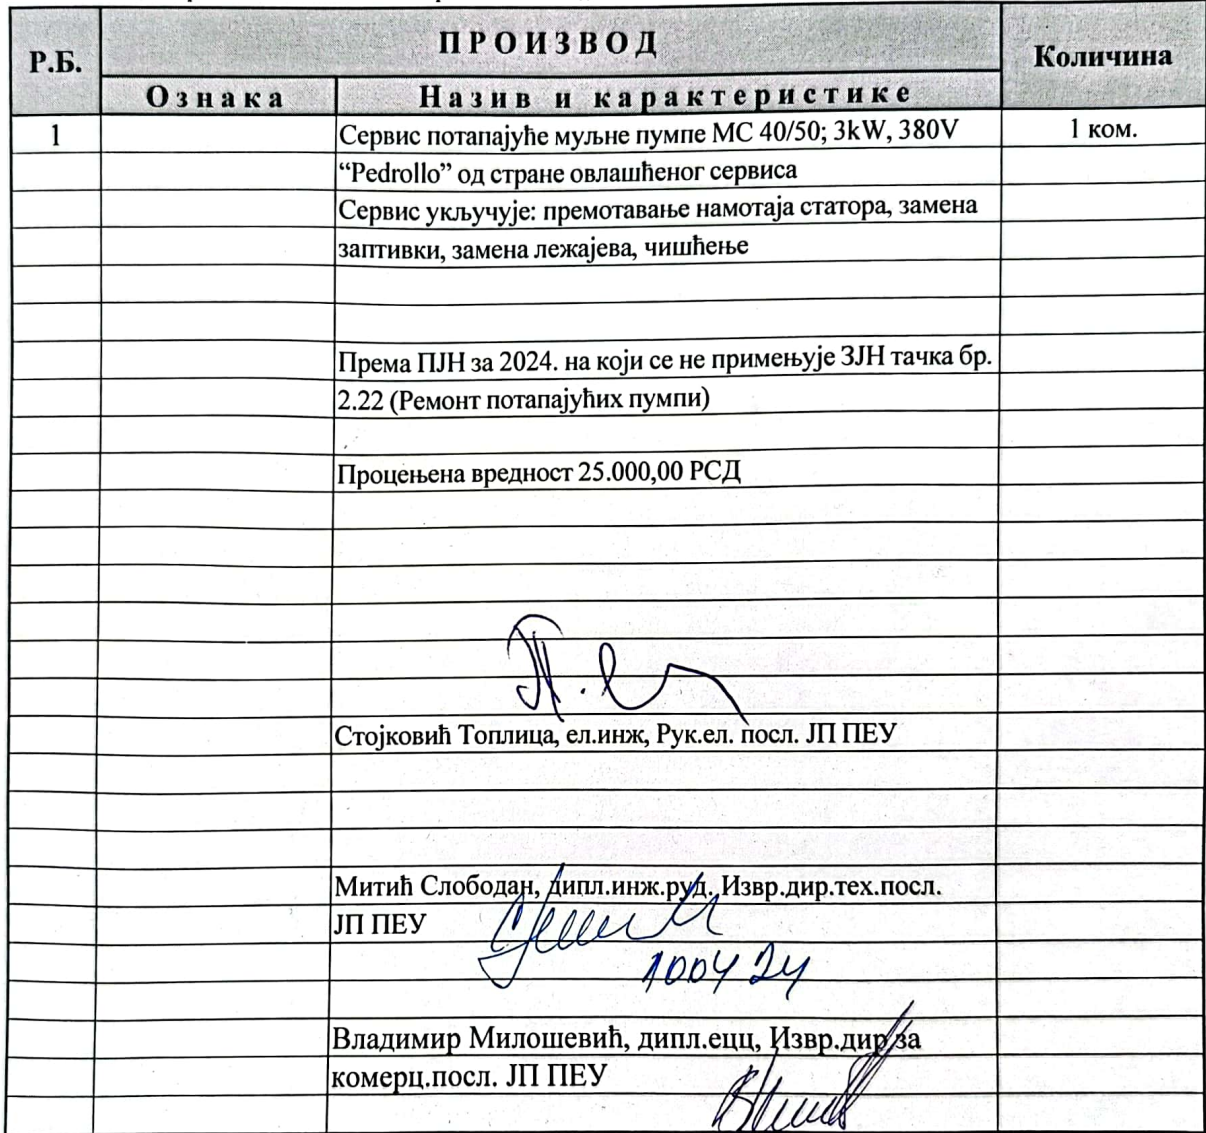 Р.Б.
ПРОИЗВОД
Количина
Ознака
Назив и карактеристике
1
Сервис потапајуће муљне пумпе МС 40/50; 3kW, 380V
1 ком.
“Pedrollo” од стране овлашћеног сервиса
Сервис укључује: премотавање намотаја статора, замена
заптивки, замена лежајева, чишћење
Према ПЈН за 2024. на који се не примењује ЗЈН тачка бр.
2.22 (Ремонт потапајућих пумпи)
Процењена вредност 25.000,00 РСД
Стојковић Топлица, ел.инж, Рук.ел. посл. ЈП ПЕУ
Митић Слободан, дипл.инж.руд., Извр.дир.тех.посл.
ЈП ПЕУ
100424
Владимир Милошевић, дипл.ецц, Извр.дир за
комерц.посл. ЈП ПЕУ